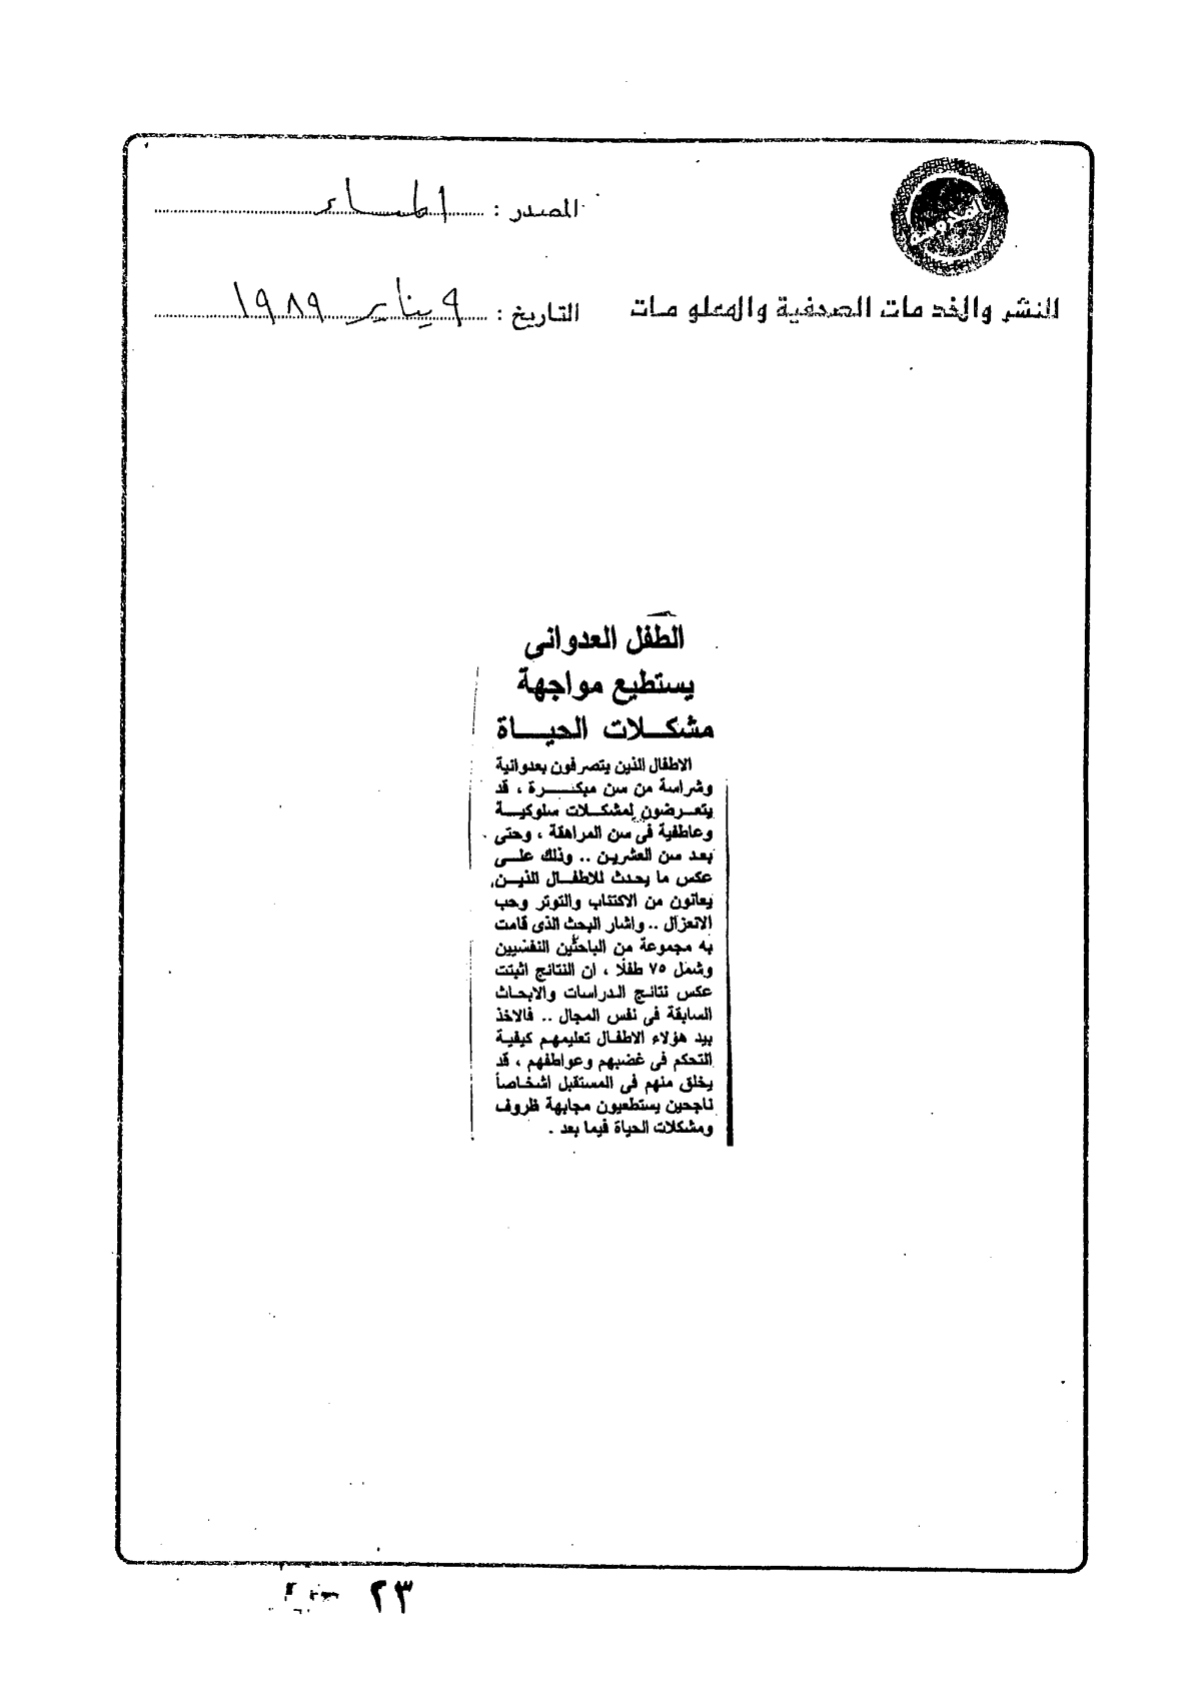 المصدر : المساء
للنشر والخدمات الصحفية والمعلومات
التاريخ : ٩ يناير ١٩٨٩
الطفل العدوانى
يستطيع مواجهة
مشكلات الحياة
الاطفال الذين يتصرفون بعدوانية
وشراسة من سن مبكرة ، قد
يتعرضون لمشكلات سلوكية
وعاطفية فى سن المراهقة ، وحتى
بعد سن العشرين .. وذلك على
عكس ما يحدث للاطفال الذين
يعانون من الاكتئاب والتوتر وحب
الانعزال .. واشار البحث الذى قامت
به مجموعة من الباحثين النفسيين
وشمل ٧٥ طفلا ، ان النتائج اثبتت
عكس نتائج الدراسات والابحاث
السابقة فى نفس المجال .. فالاخذ
بيد هؤلاء الاطفال تعليمهم كيفية
التحكم فى غضبهم وعواطفهم ، قد
يخلق منهم فى المستقبل اشخاصاً
ناجحين يستطعيون مجابهة ظروف
ومشكلات الحياة فيما بعد .
٢٣